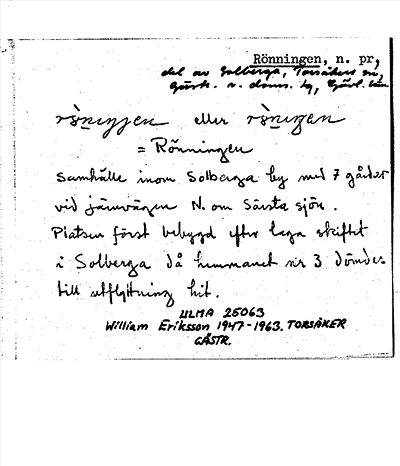 Rönningen, n. pr,
del av Solberga, Torsåkers sn,
Gästr. v. doms. tg, Gävl. län
eller
= Rönningen
Samhälle inom Solberga by med 7 gårdar
vid järnvägen N. om Särsta sjön.
Platsen först bebygd efter laga skiftet
i Solberga då hemmanet nr 3 dömdes
till utflyttning hit.
ULMA 25063
William Eriksson 1947-1963. TORSÅKER
GÄSTR.